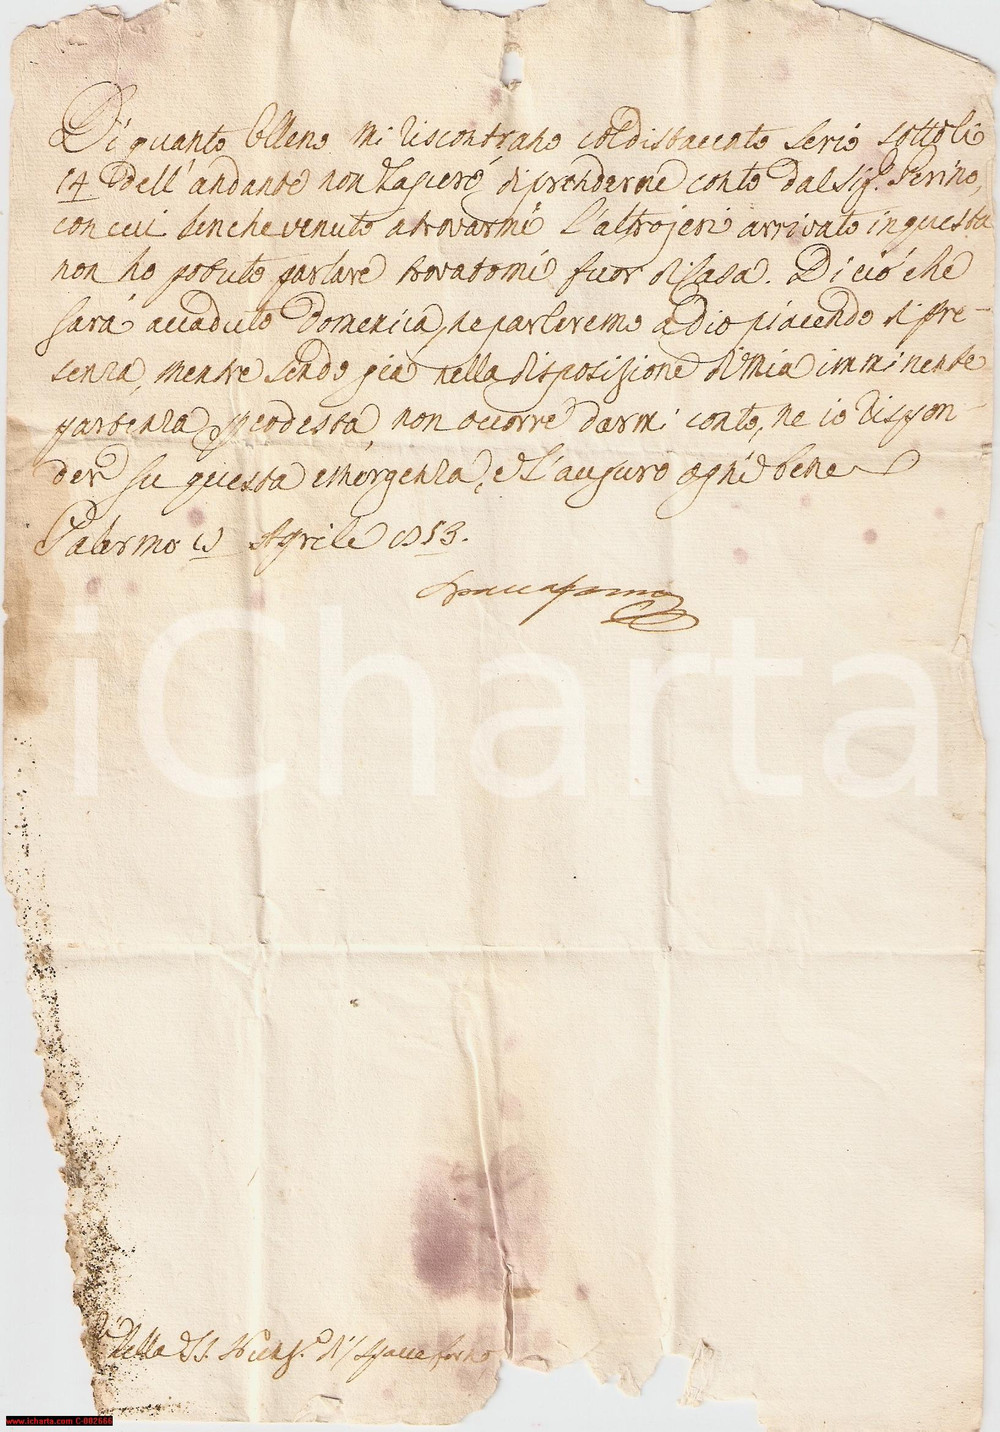 Di quanto Elleno mi riscontrano col distaccato serio sotto li
14 dell'andante non lasciero di prenderne conto dal Sig.r Serino,
con cui benche venuto a trovarmi l'altrojeri arrivato in questa
non ho potuto parlare trovatomi fuor di Casa. Di ciò che
sarà accaduto Domenica, ne parleremo a Dio piacendo di pre-
senza, mentre sendo già nella disposizione di mia imminente
partenza per codesta, non occorre darmi conto, ne io rispon-
der su questa emergenza, e l'auguro ogni bene
Palermo 19 Aprile 1853.
Spaccaforno
iCharta
della di Spaccaforno
www.icharta.com C-002666